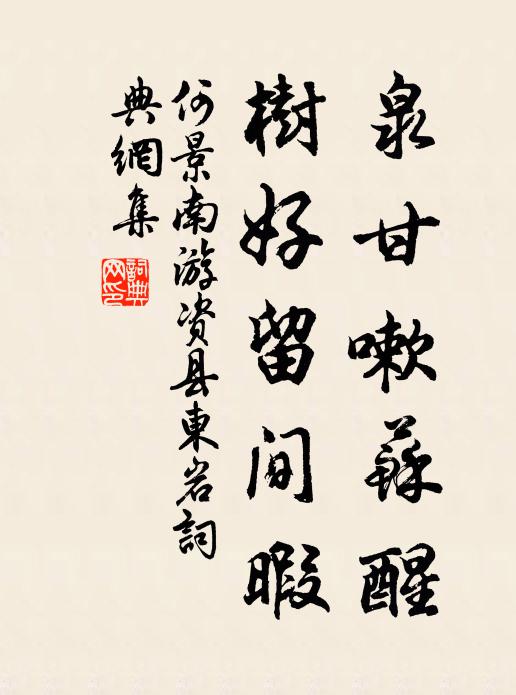 泉甘嗽蘇醒
樹好留間暇
何景南游资县東岩詞
典網集
詞典
网印